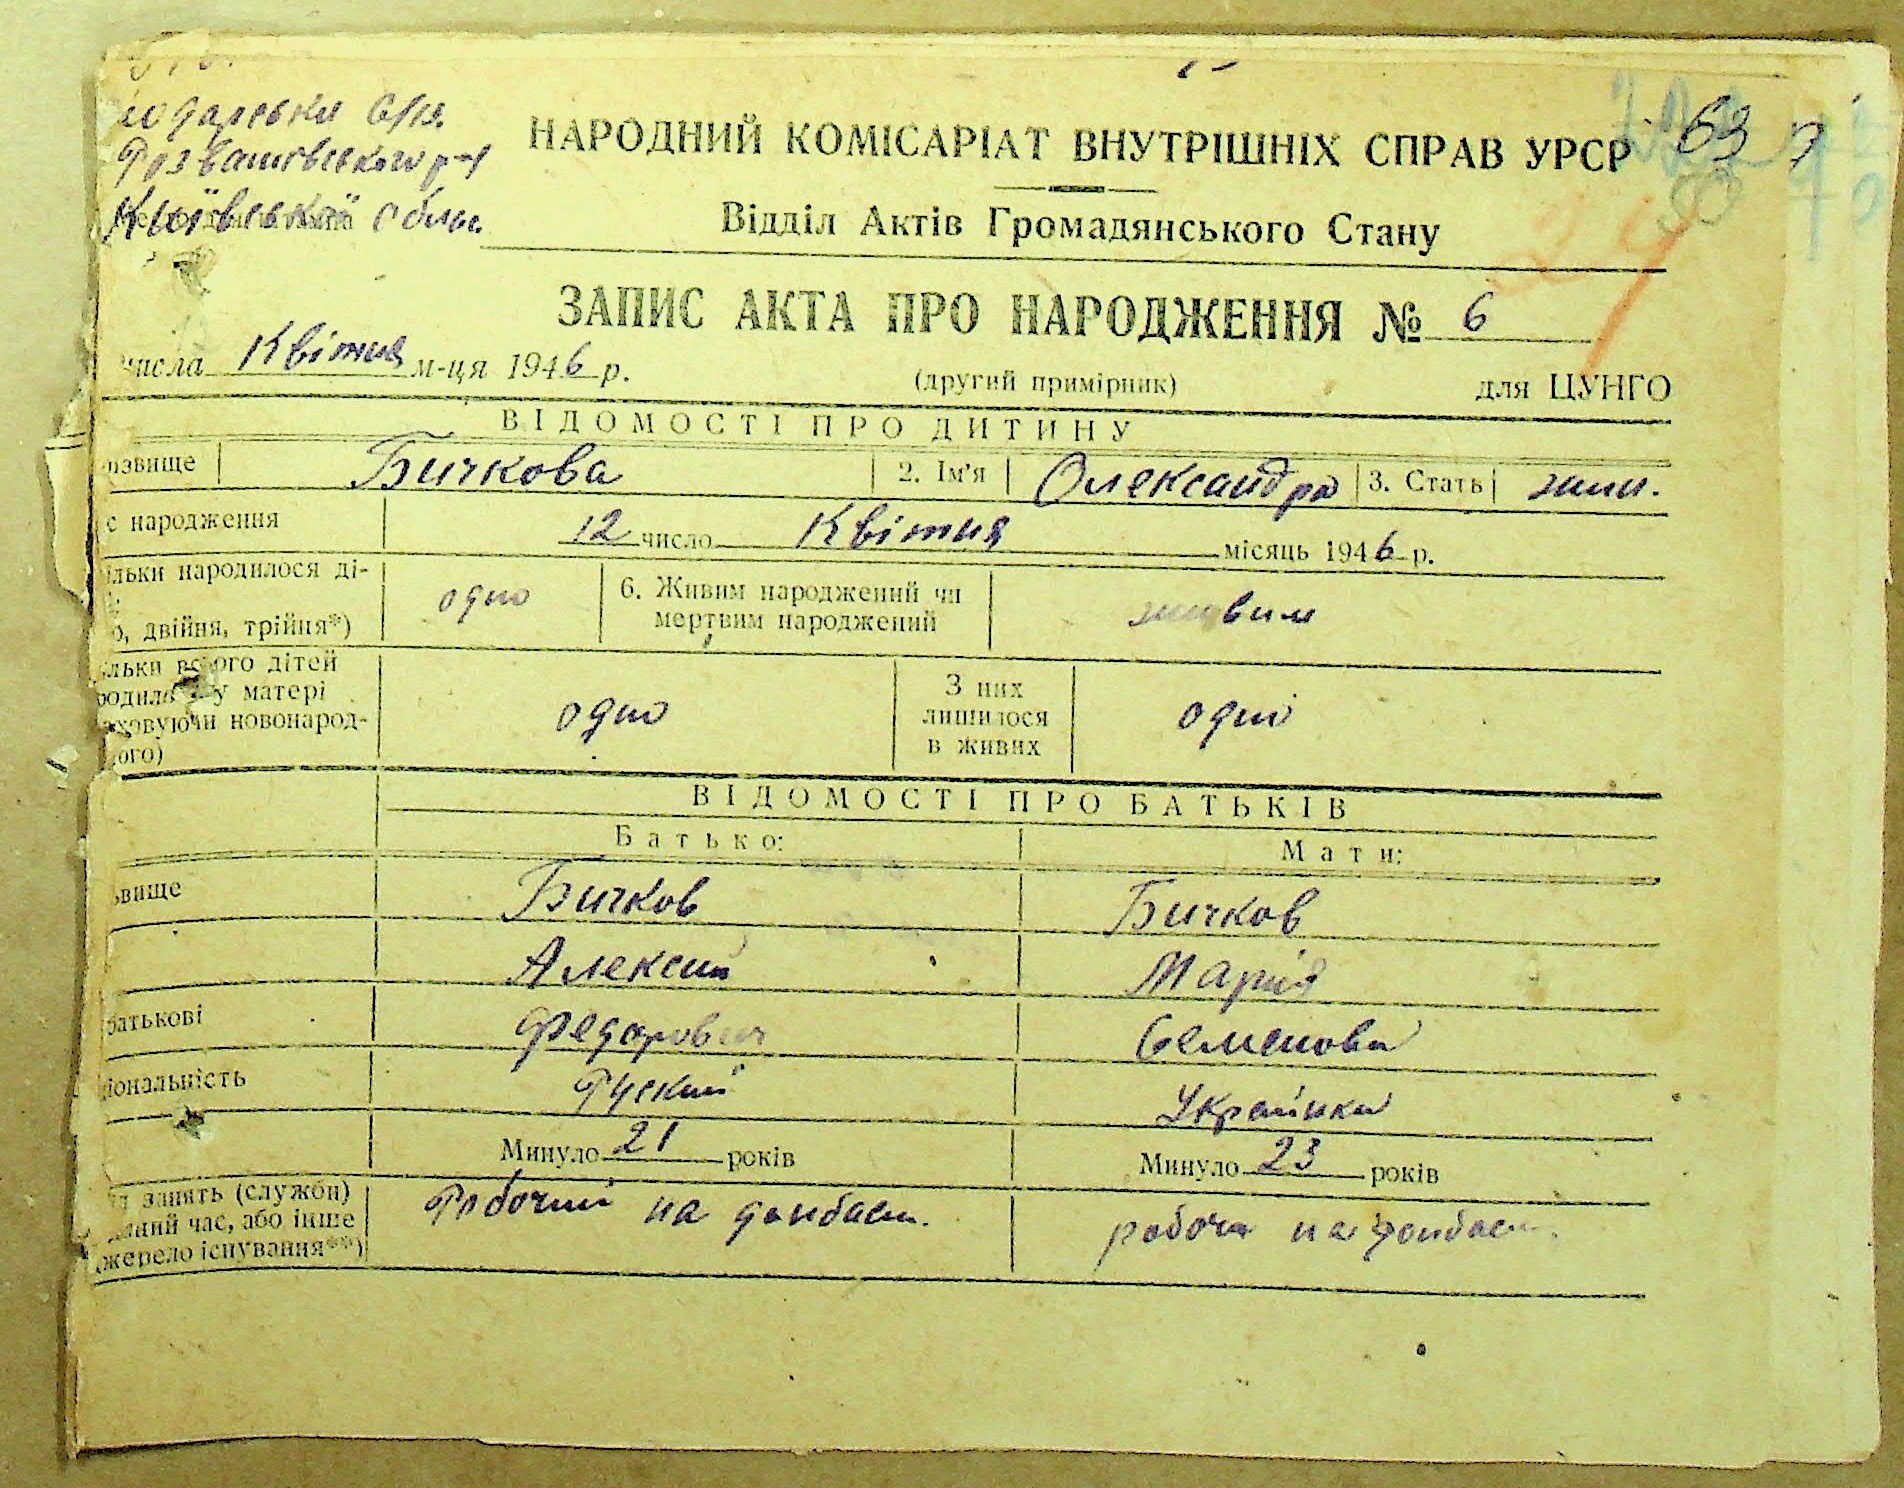 с/р.
Розважівського р-н
Київської облас.
63
50
НАРОДНИЙ КОМІСАРІАТ ВНУТРІШНІХ СПРАВ УРСР
Відділ Актів Громадянського Стану
ЗАПИС АКТА ПРО НАРОДЖЕННЯ № 6
числа Квітня м-ця 1946 р.
(другий примірник) для ЦУНГО
ВІДОМОСТІ ПРО ДИТИНУ
ізвище Бичкова 2. Ім'я Олександра 3. Стать жін.
с народження 12 число Квітня місяць 1946 р.
ільки народилося ді-
о, двійня, трійня*) одно 6. Живим народжений чи
мертвим народжений живим
ільки всього дітей
родила у матері
аховуючи новонарод-
ого) одно З них
лишилося
в живих одно
ВІДОМОСТІ ПРО БАТЬКІВ
Батько: Мати:
звище Бичков Бичков
Алексий Марія
батькові Федорович Семенова
ціональність Руский Українка
Минуло 21 років Минуло 23 років
занять (служби)
даний час, або інше
джерело існування**) Робочий на донбаси. робоча на донбаси.